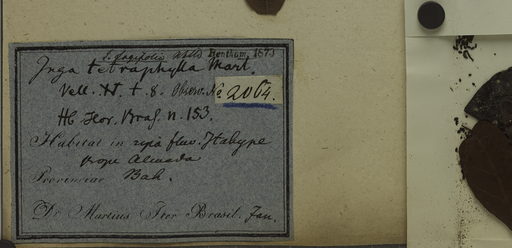 I. fagifolia Benth. Bentham, 1873
Inga tetraphylla Mart.
Vell. N. t. 8. Observ. No 2064.
Hb. Flor. Bras. n. 153.
Habitat in ripa fluv. Itahype
prope Almada
Provinciae Bah.
Dr Martius Iter Brasil. Jan.